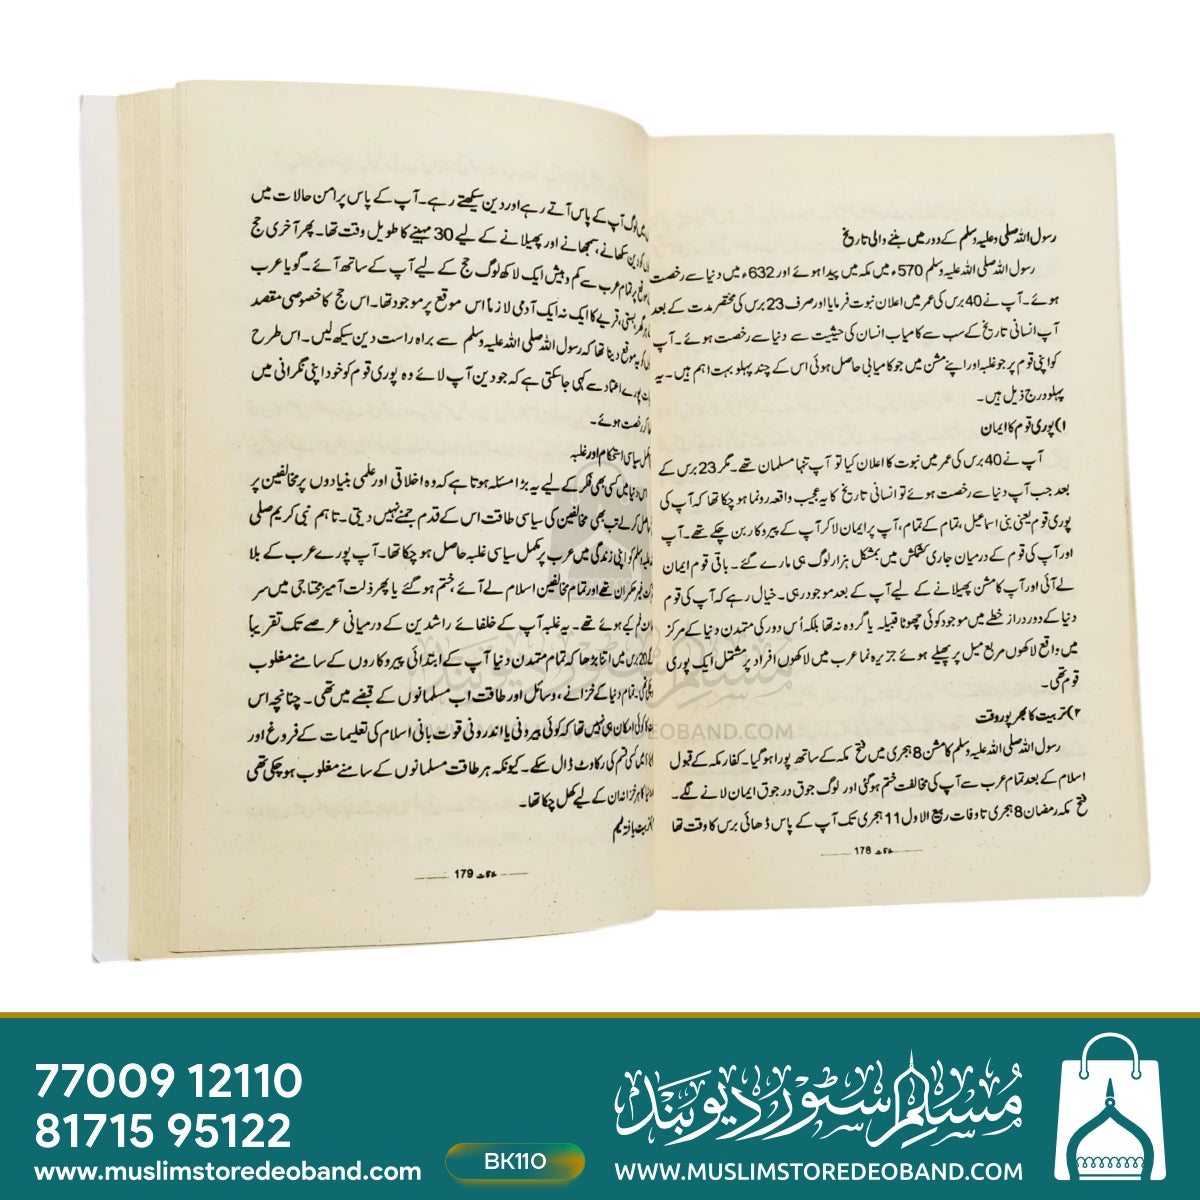 رسول اللہ صلی و علیہ وسلم کے دور میں بننے والی تاریخ
رسول اللہ صلی اللہ علیہ وسلم 570ء میں مکہ میں پیدا ہوئے اور 632ء میں دنیا سے رخصت
ہوئے۔ آپ نے 40 برس کی عمر میں اعلان نبوت فرمایا اور صرف 23 برس کی مختصر مدت کے بعد
آپ انسانی تاریخ کے سب سے کامیاب انسان کی حیثیت سے دنیا سے رخصت ہوئے۔ آپ
کو اپنی قوم پر جو غلبہ اور اپنے مشن میں جو کامیابی حاصل ہوئی اس کے چند پہلو بہت اہم ہیں۔ یہ
پہلو درج ذیل ہیں۔
۱) پوری قوم کا ایمان
آپ نے 40 برس کی عمر میں نبوت کا اعلان کیا تو آپ تنہا مسلمان تھے۔ مگر 23 برس کے
بعد جب آپ دنیا سے رخصت ہوئے تو انسانی تاریخ کا یہ عجیب واقعہ رونما ہو چکا تھا کہ آپ کی
پوری قوم یعنی بنی اسماعیل، تمام کے تمام، آپ پر ایمان لا کر آپ کے پیروکار بن چکے تھے۔ آپ
اور آپ کی قوم کے درمیان جاری کشمکش میں بمشکل ہزار لوگ ہی مارے گئے۔ باقی قوم ایمان
لے آئی اور آپ کا مشن پھیلانے کے لیے آپ کے بعد موجود رہی۔ خیال رہے کہ آپ کی قوم
دنیا کے دور دراز خطے میں موجود کوئی چھوٹا قبیلہ یا گروہ نہ تھا بلکہ اُس دور کی متمدن دنیا کے مرکز
میں واقع لاکھوں مربع میل پر پھیلے ہوئے جزیرہ نما عرب میں لاکھوں افراد پر مشتمل ایک پوری
قوم تھی۔
۲) تربیت کا بھرپور وقت
رسول اللہ صلی اللہ علیہ وسلم کا مشن 8 ہجری میں فتح مکہ کے ساتھ پورا ہوگیا۔ کفار مکہ کے قبول
اسلام کے بعد تمام عرب سے آپ کی مخالفت ختم ہوگئی اور لوگ جوق در جوق ایمان لانے لگے۔
فتح مکہ رمضان 8 ہجری تا وفات ربیع الاول 11 ہجری تک آپ کے پاس ڈھائی برس کا وقت تھا
178
لوگ آپ کے پاس آتے رہے اور دین سیکھتے رہے۔ آپ کے پاس پرامن حالات میں
کو دین سکھانے، سمجھانے اور پھیلانے کے لیے 30 مہینے کا طویل وقت تھا۔ پھر آخری حج
موقع پر تمام عرب سے کم و بیش ایک لاکھ لوگ حج کے لیے آپ کے ساتھ آئے۔ گویا عرب
بستی، قریے کا ایک نہ ایک آدمی لازماً اس موقع پر موجود تھا۔ اس حج کا خصوصی مقصد
کو یہ موقع دینا تھا کہ رسول اللہ صلی اللہ علیہ وسلم سے براہ راست دین سیکھ لیں۔ اس طرح
پورے اعتماد سے کہی جاسکتی ہے کہ جو دین آپ لائے وہ پوری قوم کو خود اپنی نگرانی میں
کر رخصت ہوئے۔
سیاسی استحکام اور غلبہ
اس دنیا میں کسی بھی فکر کے لیے یہ بڑا مسئلہ ہوتا ہے کہ وہ اخلاقی اور علمی بنیادوں پر مخالفین پر
کرلے تب بھی مخالفین کی سیاسی طاقت اس کے قدم جمنے نہیں دیتی۔ تاہم نبی کریم صلی
وسلم کو اپنی زندگی میں عرب پر مکمل سیاسی غلبہ حاصل ہو چکا تھا۔ آپ پورے عرب کے بلا
حکمران تھے اور تمام مخالفین اسلام لے آئے، ختم ہو گئے یا پھر ذلت آمیز محتاجی میں سر
کیے ہوئے تھے۔ یہ غلبہ آپ کے خلفائے راشدین کے درمیانی عرصے تک تقریباً
20 برس میں اتنا بڑھا کہ تمام متمدن دنیا آپ کے ابتدائی پیروکاروں کے سامنے مغلوب
تھی۔ تمام دنیا کے خزانے، وسائل اور طاقت اب مسلمانوں کے قبضے میں تھی۔ چنانچہ اس
کوئی امکان ہی نہیں تھا کہ کوئی بیرونی یا اندرونی قوت بانی اسلام کی تعلیمات کے فروغ اور
میں کسی قسم کی رکاوٹ ڈال سکے۔ کیونکہ ہر طاقت مسلمانوں کے سامنے مغلوب ہو چکی تھی
کا ہر خزانہ ان کے لیے کھل چکا تھا۔
تربیت یافتہ ٹیم
179
مسلم سٹور دیوبند
WWW.MUSLIMSTOREDEOBAND.COM
77009 12110
81715 95122
www.muslimstoredeoband.com
BK110
مسلم سٹور دیوبند
WWW.MUSLIMSTOREDEOBAND.COM